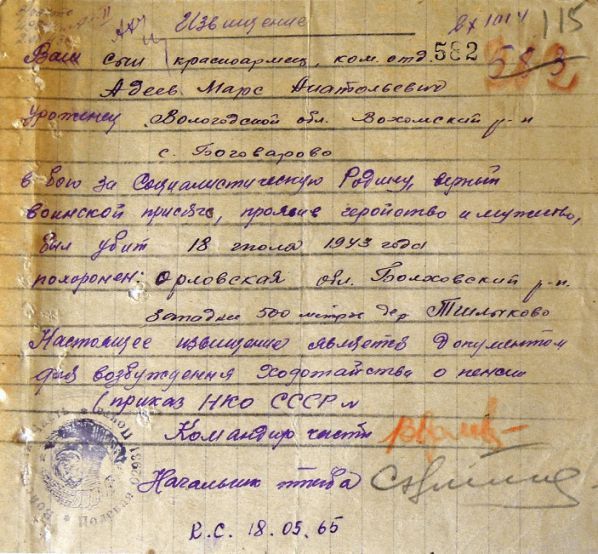 Извищение
115
Ваш сын красноармеец, ком. отд. 582
Адеев Марс Анатольевич
Уроженец Вологодской обл. Вохомский р-н
с. Боговарово
в бою за Социалистическую Родину, верный
воинской присяге, проявив геройство и мужество,
был убит 18 июля 1943 года
похоронен: Орловская обл. Болховский р-н.
западнее 500 метры дер.
Настоящее извищение является документом
для возбуждения ходотайства о пенсии
(приказ НКО СССР №
Командир части
Начальник штаба
К.С. 18.05.65